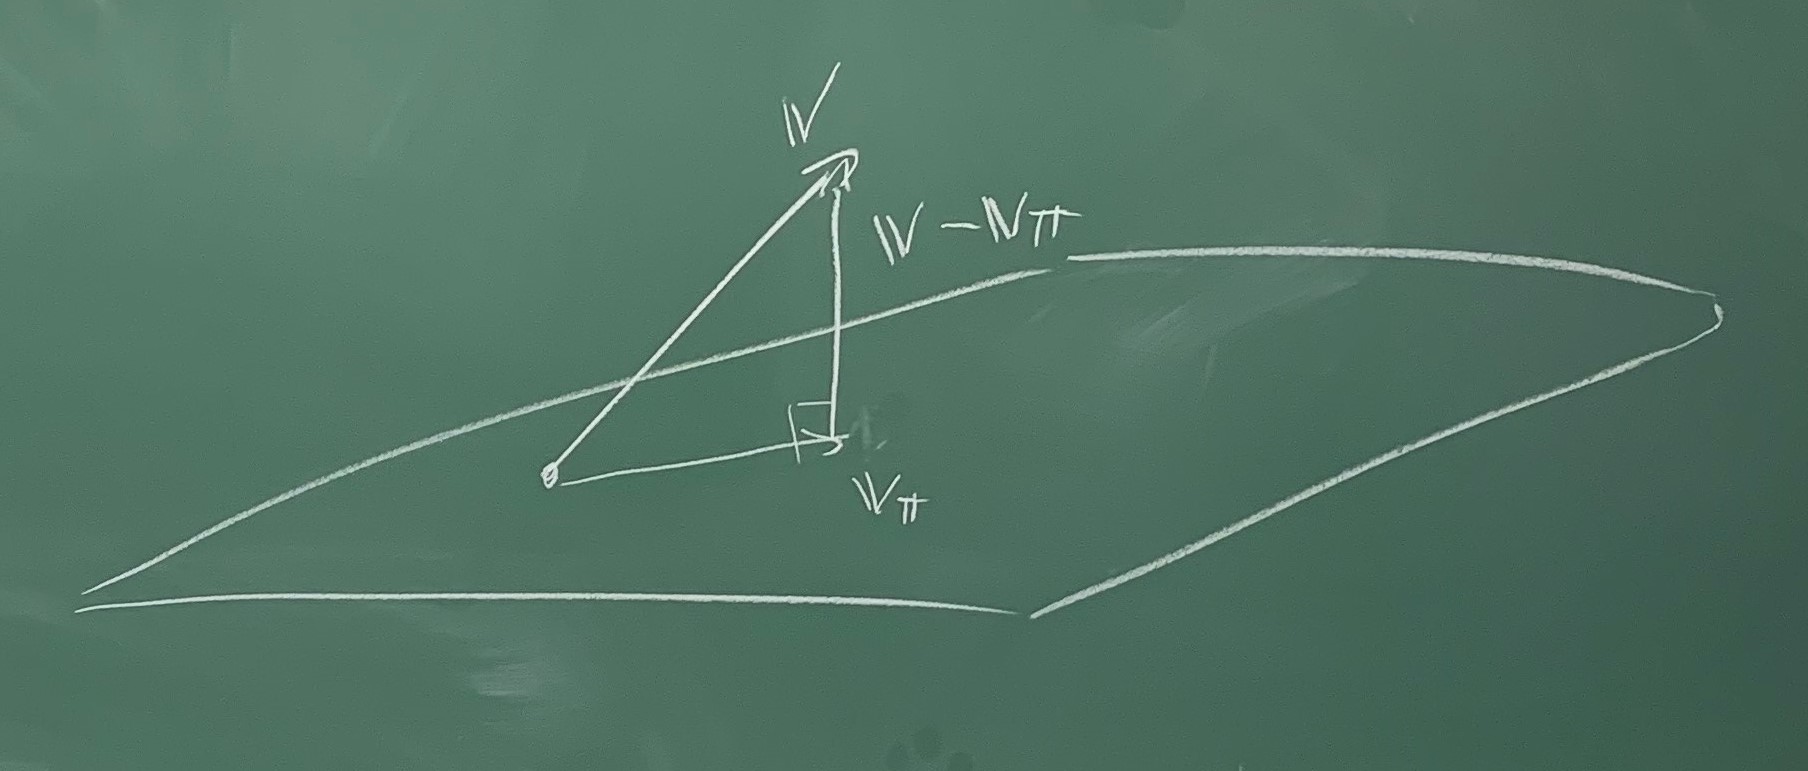 𝕍
𝕍 - 𝕍π
𝕍π